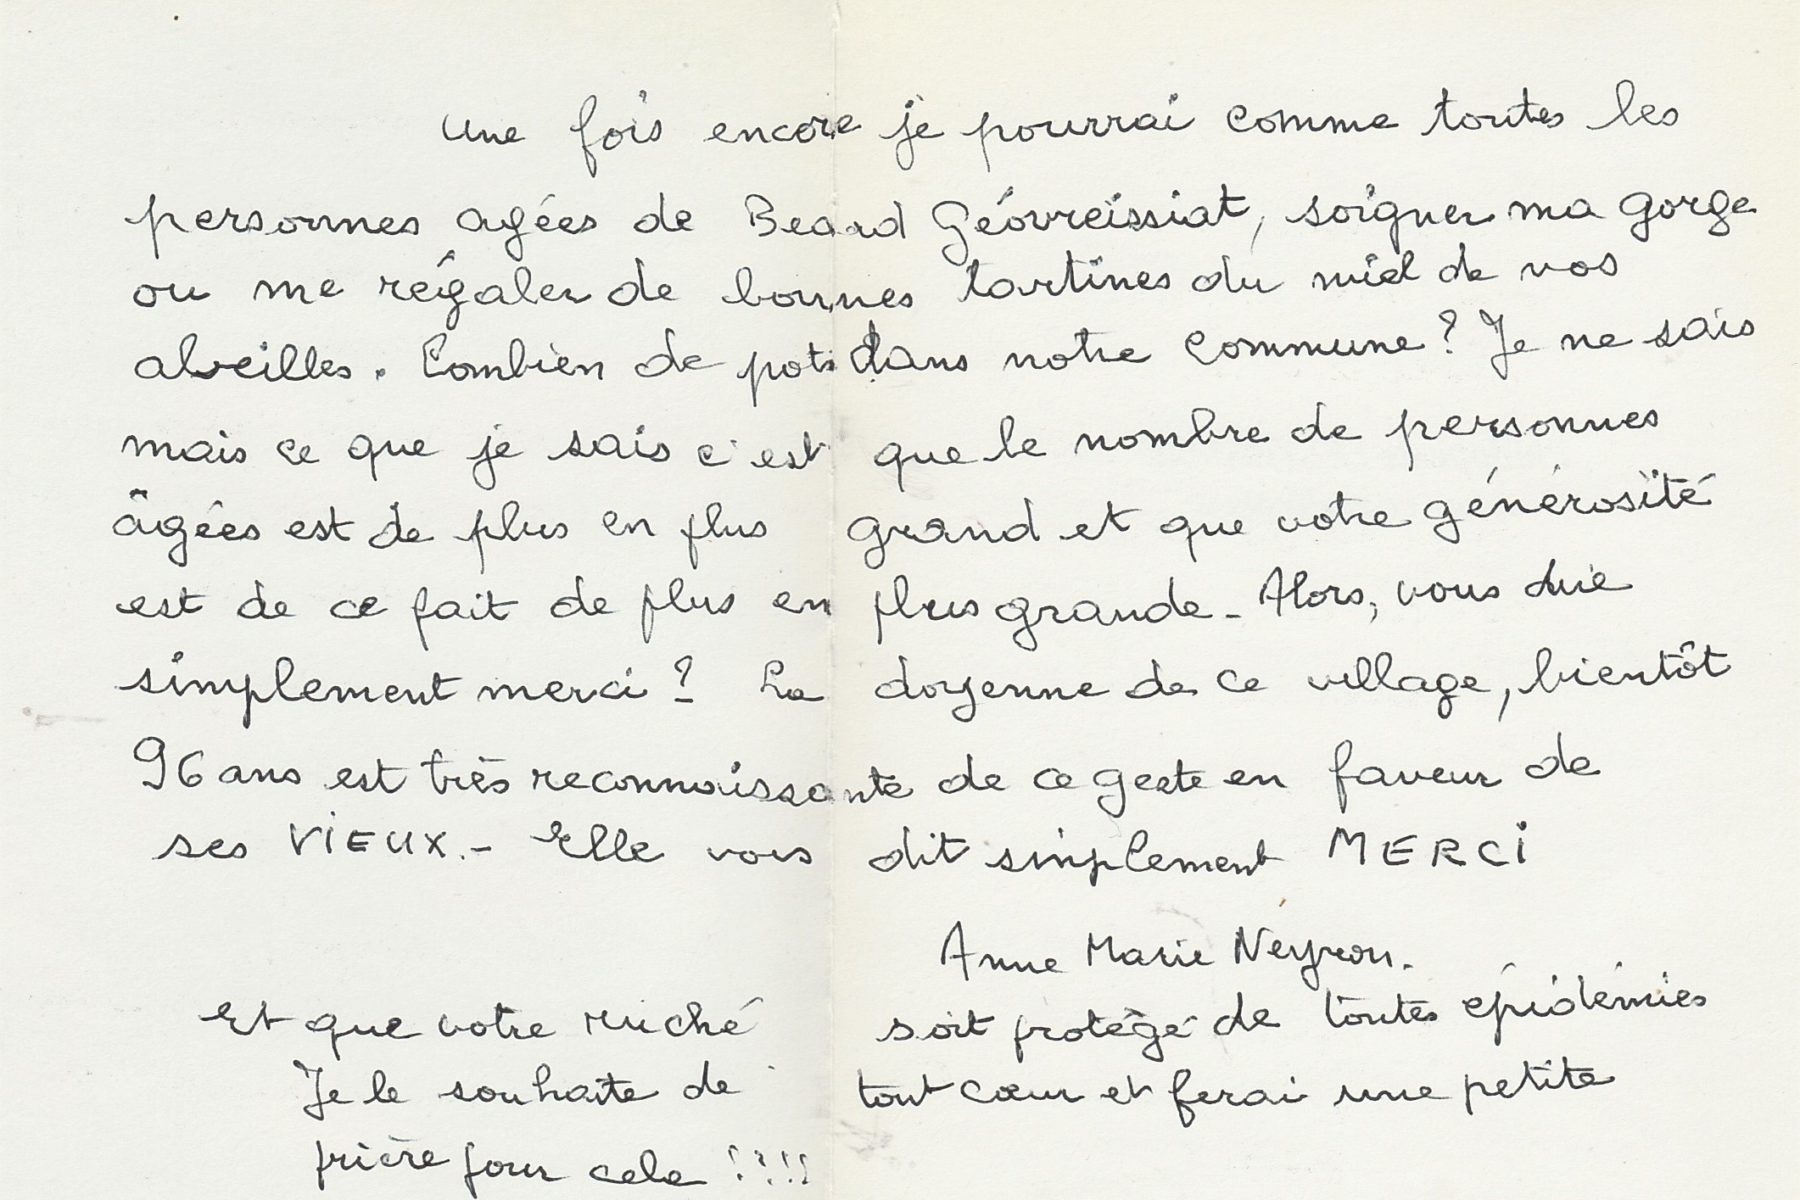 Une fois encore je pourrai comme toutes les
personnes agées de Beard Géovreissiat, soigner ma gorge
ou me régaler de bonnes tartines du miel de vos
abeilles. Combien de pots dans notre commune ? Je ne sais
mais ce que je sais c'est que le nombre de personnes
âgées est de plus en plus grand et que votre générosité
est de ce fait de plus en plus grande - Alors, vous dire
simplement merci ? La doyenne de ce village, bientôt
96 ans est très reconnaissante de ce geste en faveur de
ses VIEUX. - Elle vous dit simplement MERCI
Anne Marie Neyron.
Et que votre ruché soit protégé de toutes épidémies
Je le souhaite de tout cœur et ferai une petite
prière pour cela !?!!